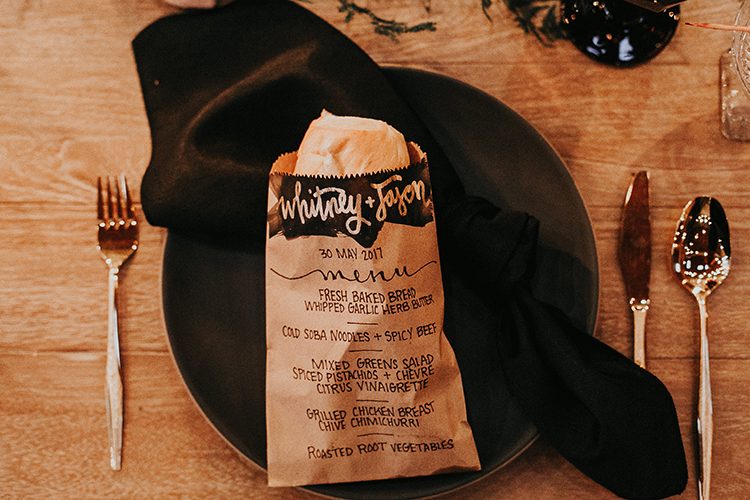 Whitney + Jason
30 MAY 2017
menu
FRESH BAKED BREAD
WHIPPED GARLIC HERB BUTTER
COLD SOBA NOODLES + SPICY BEEF
MIXED GREENS SALAD
SPICED PISTACHIOS + CHÈVRE
CITRUS VINAIGRETTE
GRILLED CHICKEN BREAST
CHIVE CHIMICHURRI
ROASTED ROOT VEGETABLES